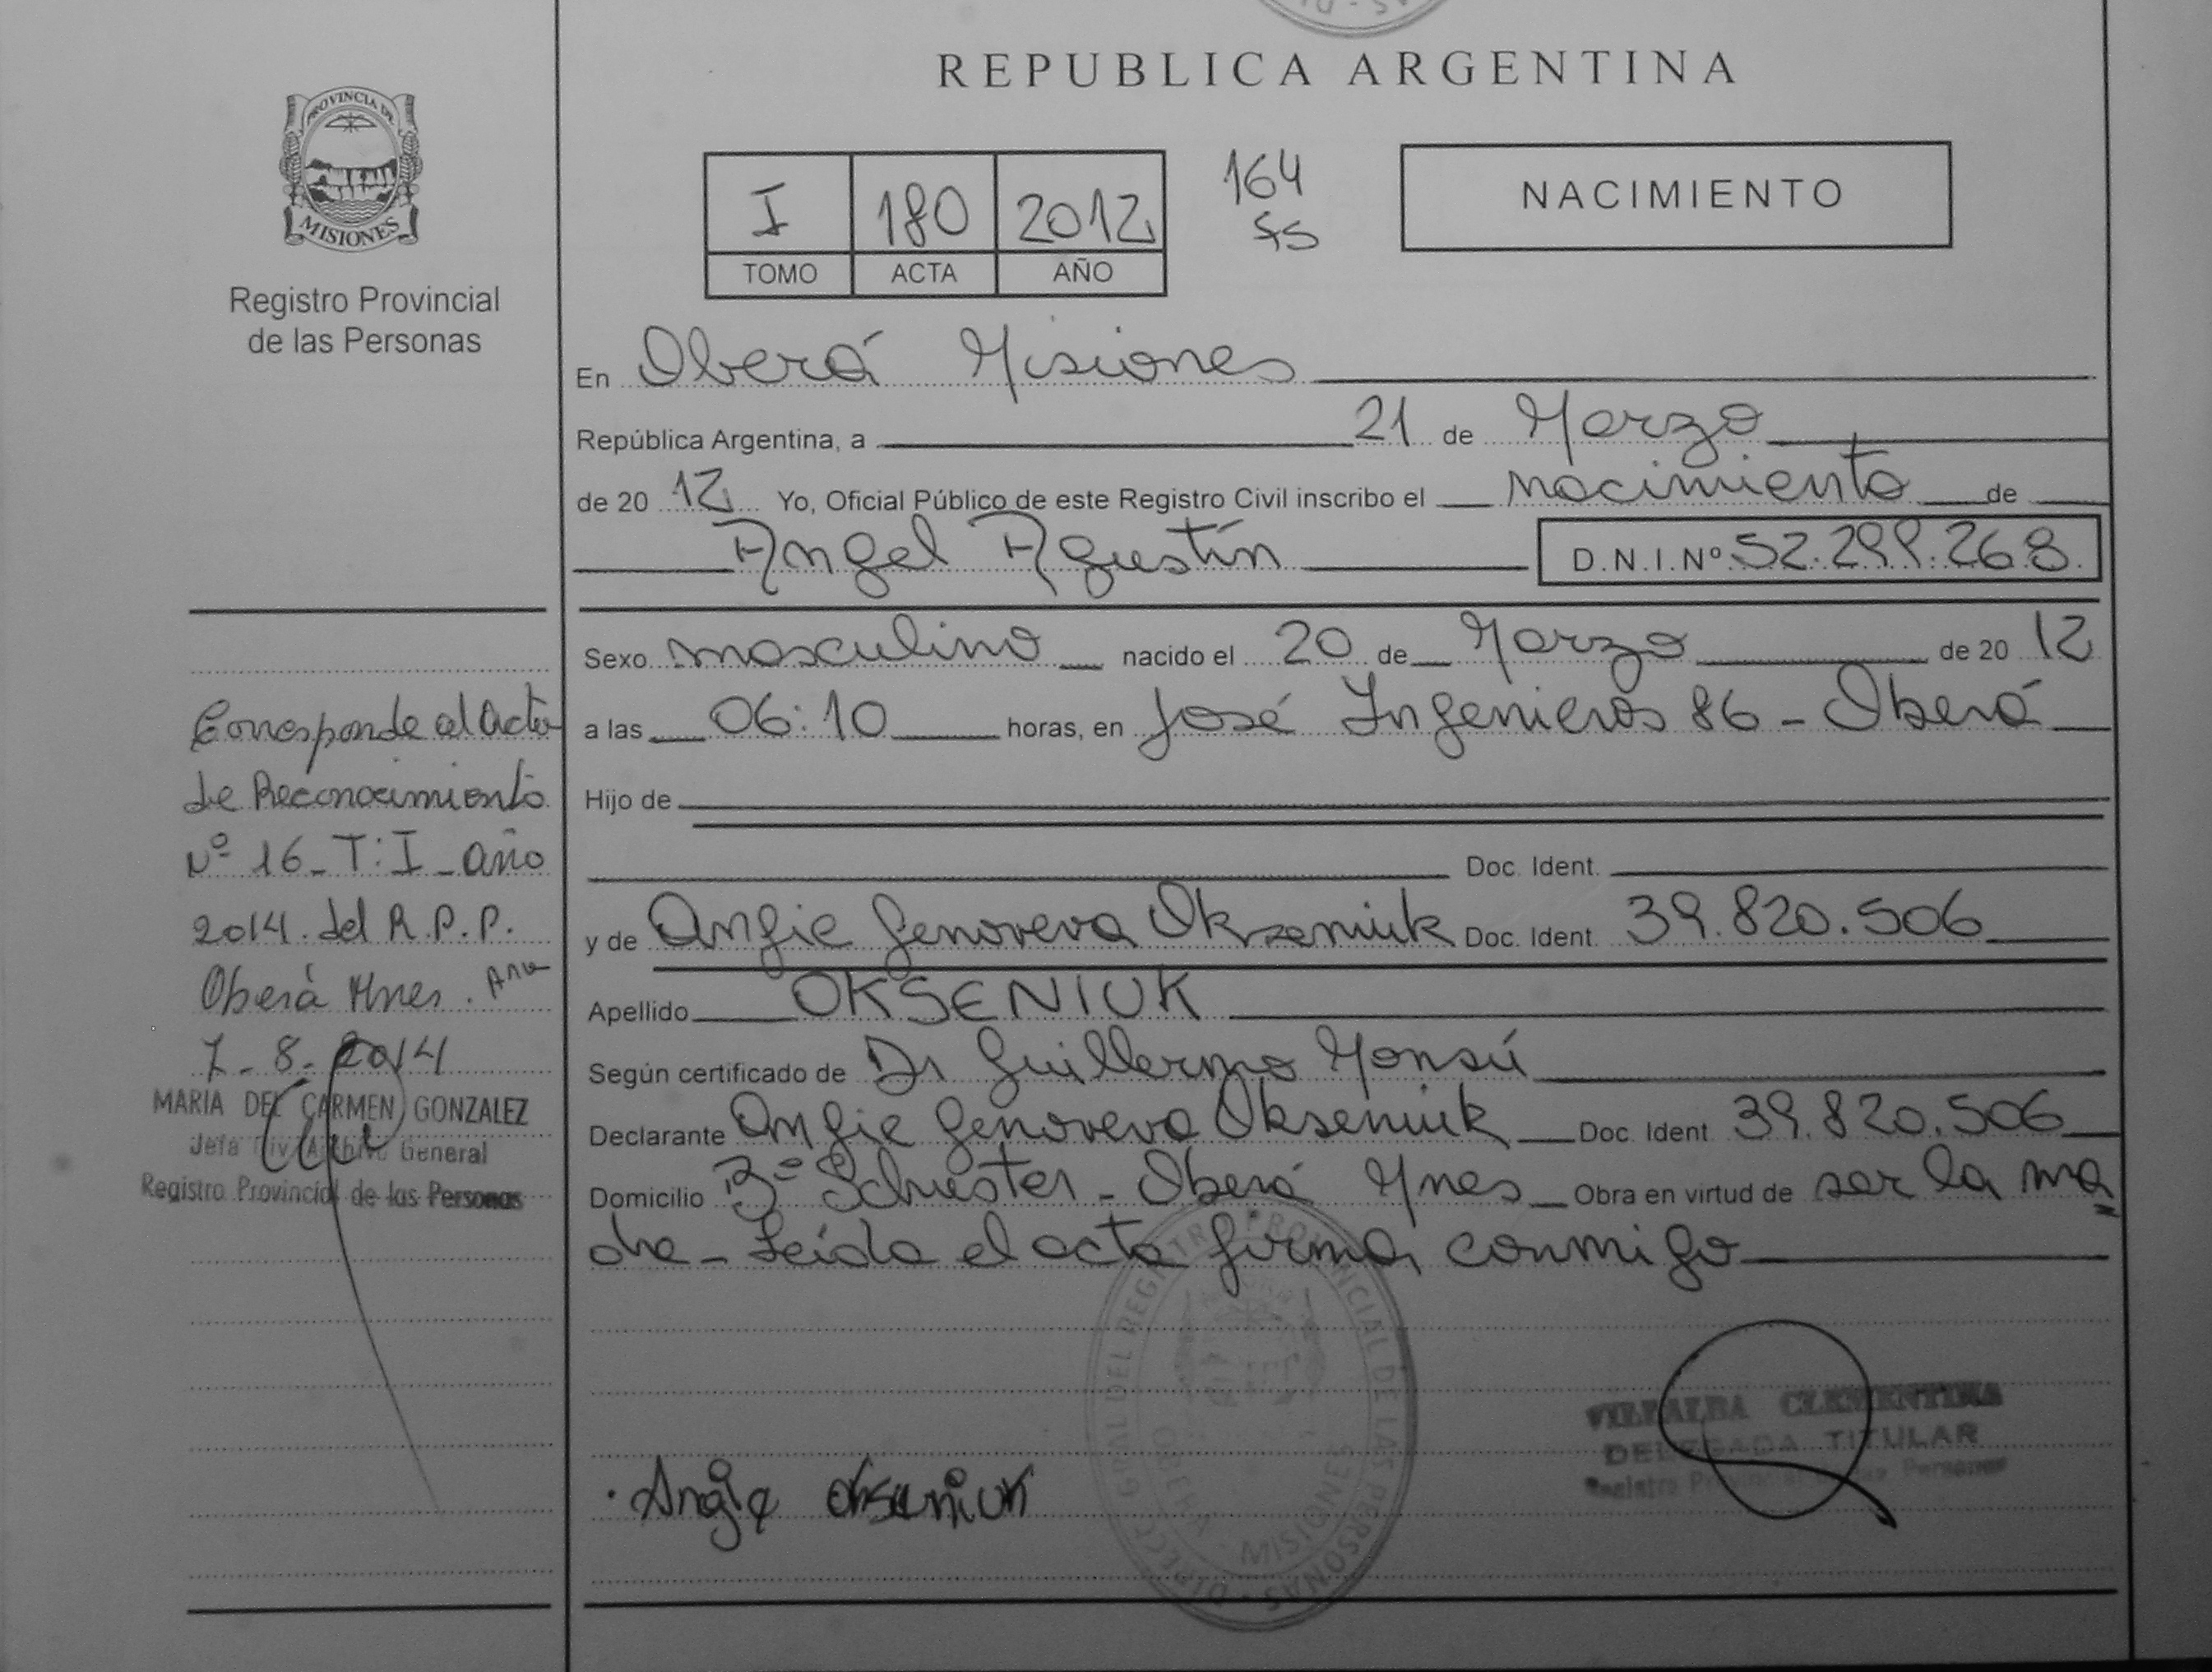 REPUBLICA ARGENTINA
PROVINCIA DE
MISIONES
Registro Provincial
de las Personas
I 180 2012
TOMO ACTA AÑO
164
fs
NACIMIENTO
En Oberá Misiones
República Argentina, a 21 de Marzo
de 20 12 Yo, Oficial Público de este Registro Civil inscribo el nacimiento de
Angel Agustín D.N.I.Nº 52.299.268
Sexo masculino nacido el 20 de Marzo de 20 12
a las 06:10 horas, en José Ingenieros 86 - Oberá
Hijo de
Doc. Ident.
y de Angie Genoveva Okseniuk Doc. Ident. 39.820.506
Apellido OKSENIUK
Según certificado de Dr Guillermo Monsú
Declarante Angie Genoveva Okseniuk Doc. Ident 39.820.506
Domicilio Bº Schuster - Oberá Mnes Obra en virtud de ser la ma
dre - Leída el acta firma conmigo
Corresponde al Acta
de Reconocimiento
Nº 16 - T: I - año
2014 del R.P.P.
Oberá Mnes.
7 - 8 - 2014
MARIA DEL CARMEN GONZALEZ
Jefa Div. Archivo General
Registro Provincial de las Personas
Angie Okseniuk
VILLALBA CLEMENTINA
DELEGADA TITULAR
Registro Provincial de las Personas
DIRECC. GRAL DEL REGISTRO PROVINCIAL DE LAS PERSONAS
MISIONES